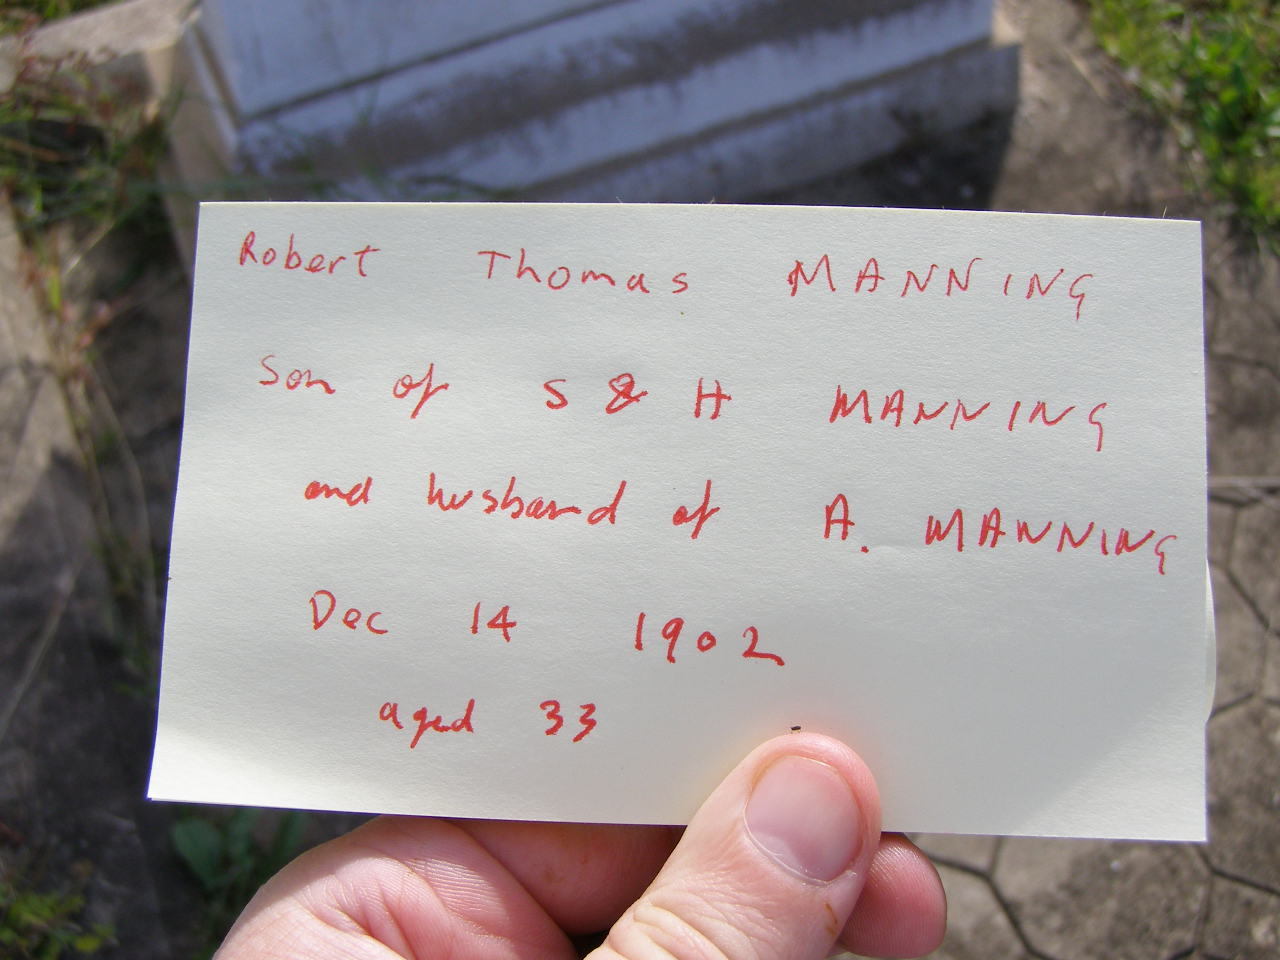 Robert Thomas MANNING
Son of S & H MANNING
and husband of A. MANNING
Dec 14 1902
aged 33